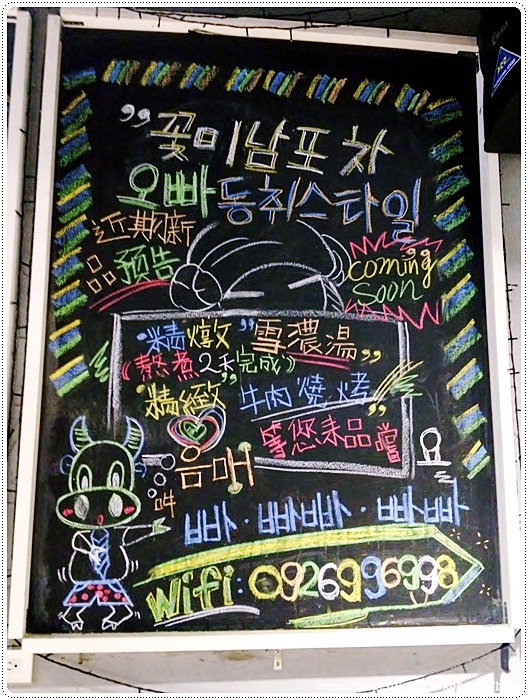 "꽃미남포차
오빠동취스타일
近期新
品預告
coming
Soon
"精燉"雪濃湯"
(熬煮2天完成)
"精緻"牛肉燒烤"
等您來品嚐
음메
叫
빠·빠빠·빠빠
Wifi:0926996998